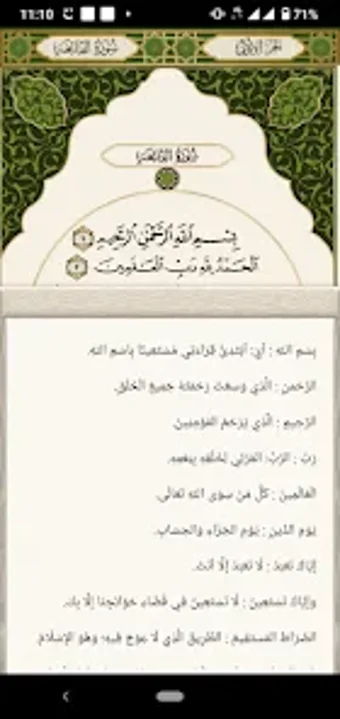 11:10 71%
سورة الفاتحة الجزء الأول
سورة الفاتحة
بِسْمِ ٱللَّهِ ٱلرَّحْمَٰنِ ٱلرَّحِيمِ ١
ٱلْحَمْدُ لِلَّهِ رَبِّ ٱلْعَٰلَمِينَ ٢
بِسْمِ اللهِ : أي: أَبْتَدِئُ قِرَاءَتِي مُسْتَعِينًا بِاسْمِ اللهِ.
الرَّحْمَنِ : الَّذِي وَسِعَتْ رَحْمَتُهُ جَمِيعَ الْخَلْقِ.
الرَّحِيمِ : الَّذِي يَرْحَمُ الْمُؤْمِنِينَ.
رَبِّ : الرَّبُّ: الْمُرَبِّي لِخَلْقِهِ بِنِعَمِهِ.
الْعَالَمِينَ : كُلِّ مَنْ سِوَى اللهِ تَعَالَى.
يَوْمِ الدِّينِ : يَوْمِ الْجَزَاءِ وَالْحِسَابِ.
إِيَّاكَ نَعْبُدُ : لَا نَعْبُدُ إِلَّا أَنْتَ.
وَإِيَّاكَ نَسْتَعِينُ : لَا نَسْتَعِينُ فِي قَضَاءِ حَوَائِجِنَا إِلَّا بِكَ.
الصِّرَاطَ الْمُسْتَقِيمَ : الطَّرِيقَ الَّذِي لَا عِوَجَ فِيهِ؛ وَهُوَ الْإِسْلَامُ.